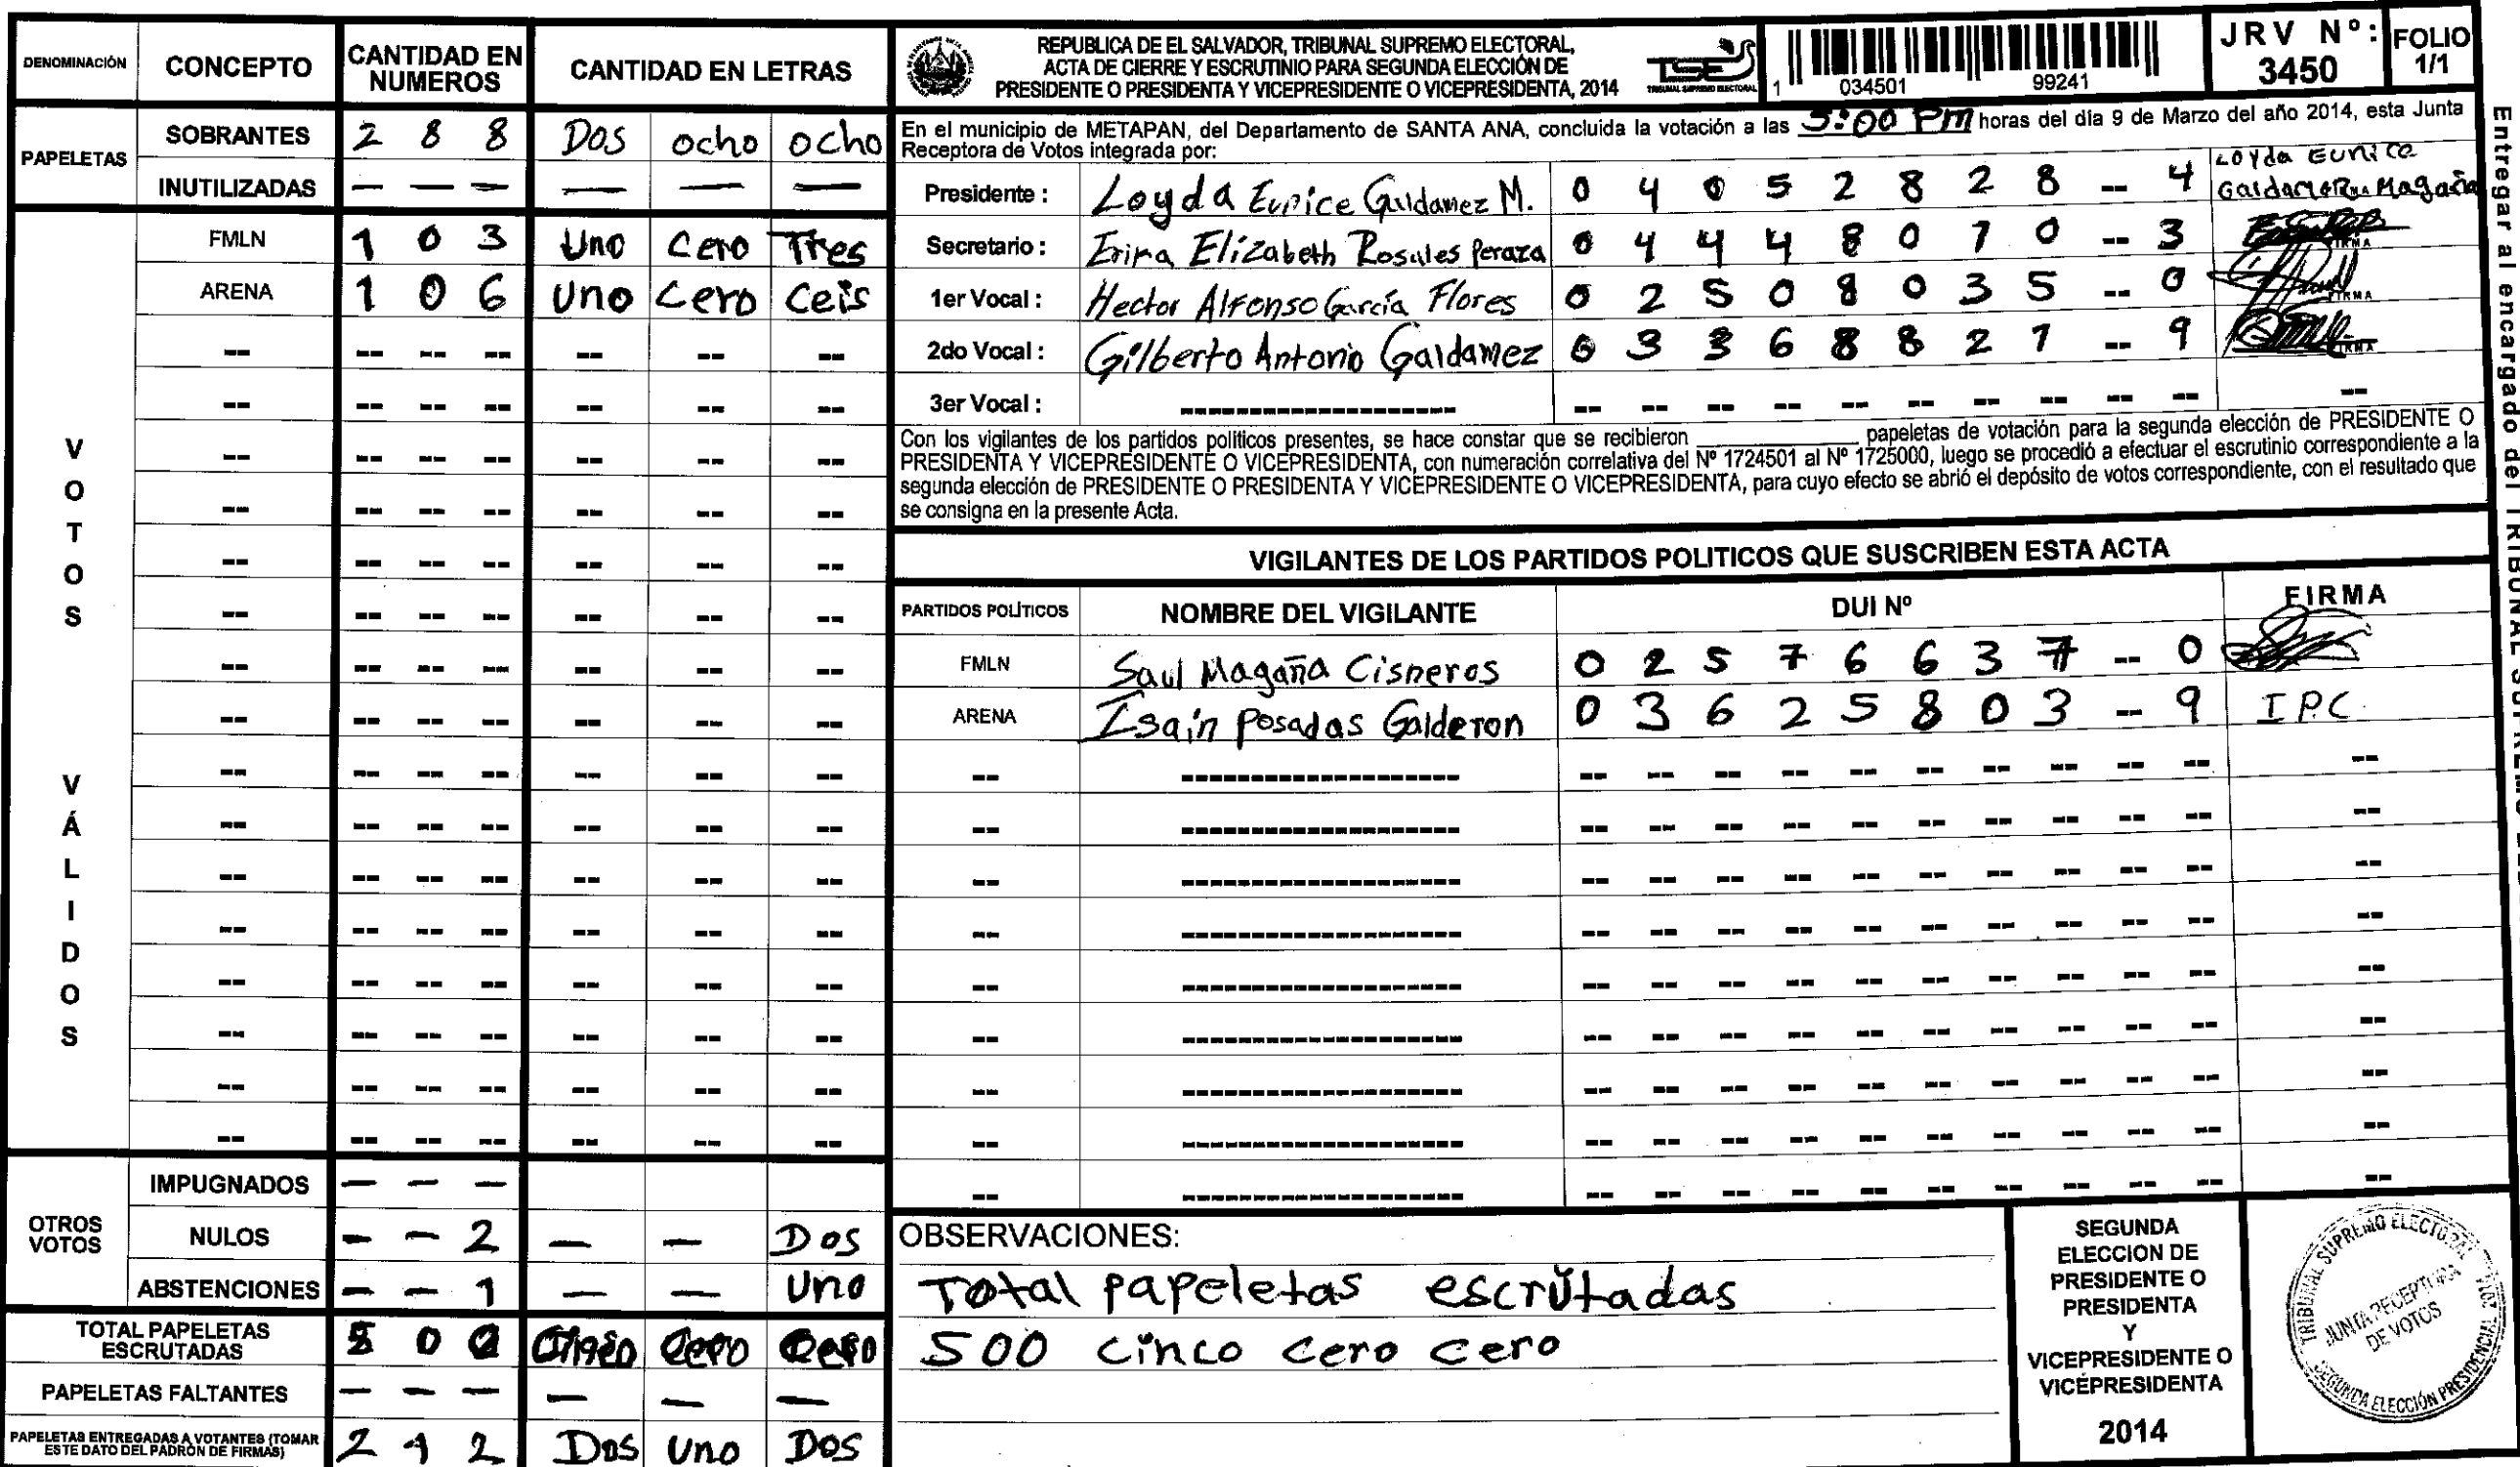 DENOMINACIÓN CONCEPTO CANTIDAD EN NUMEROS CANTIDAD EN LETRAS
PAPELETAS
SOBRANTES 2 8 8 Dos ocho ocho
INUTILIZADAS — — — — — —
VOTOS VÁLIDOS
FMLN 1 0 3 Uno Cero Tres
ARENA 1 0 6 uno Cero Ceis
OTROS VOTOS
IMPUGNADOS — — —
NULOS — — 2 — — Dos
ABSTENCIONES — — 1 — — Uno
TOTAL PAPELETAS ESCRUTADAS 5 0 0 Cinco Cero Cero
PAPELETAS FALTANTES — — — — — —
PAPELETAS ENTREGADAS A VOTANTES (TOMAR ESTE DATO DEL PADRÓN DE FIRMAS) 2 1 2 Dos Uno Dos
REPUBLICA DE EL SALVADOR, TRIBUNAL SUPREMO ELECTORAL,
ACTA DE CIERRE Y ESCRUTINIO PARA SEGUNDA ELECCIÓN DE
PRESIDENTE O PRESIDENTA Y VICEPRESIDENTE O VICEPRESIDENTA, 2014
TSE
TRIBUNAL SUPREMO ELECTORAL
1 034501 99241
JRV Nº: 3450
FOLIO 1/1
En el municipio de METAPAN, del Departamento de SANTA ANA, concluida la votación a las 5:00 Pm horas del día 9 de Marzo del año 2014, esta Junta
Receptora de Votos integrada por:
Presidente : Loyda Eunice Galdamez M. 0 4 0 5 2 8 2 8 -- 4 Loyda Eunice Galdamez Magaña
Secretario : Erika Elizabeth Rosales Peraza 0 4 4 4 8 0 7 0 -- 3
1er Vocal : Hector Alfonso García Flores 0 2 5 0 8 0 3 5 -- 0
2do Vocal : Gilberto Antonio Galdamez 0 3 3 6 8 8 2 7 -- 9
3er Vocal :
Con los vigilantes de los partidos políticos presentes, se hace constar que se recibieron ________ papeletas de votación para la segunda elección de PRESIDENTE O
PRESIDENTA Y VICEPRESIDENTE O VICEPRESIDENTA, con numeración correlativa del Nº 1724501 al Nº 1725000, luego se procedió a efectuar el escrutinio correspondiente a la
segunda elección de PRESIDENTE O PRESIDENTA Y VICEPRESIDENTE O VICEPRESIDENTA, para cuyo efecto se abrió el depósito de votos correspondiente, con el resultado que
se consigna en la presente Acta.
VIGILANTES DE LOS PARTIDOS POLITICOS QUE SUSCRIBEN ESTA ACTA
PARTIDOS POLÍTICOS NOMBRE DEL VIGILANTE DUI Nº FIRMA
FMLN Saul Magaña Cisneros 0 2 5 7 6 6 3 7 -- 0
ARENA Isaín Posadas Galderon 0 3 6 2 5 8 0 3 -- 9 I P.C.
OBSERVACIONES:
Total papeletas escrutadas
500 cinco cero cero
SEGUNDA
ELECCION DE
PRESIDENTE O
PRESIDENTA
Y
VICEPRESIDENTE O
VICEPRESIDENTA
2014
TRIBUNAL SUPREMO ELECTORAL 2014
JUNTA RECEPTORA
DE VOTOS
SEGUNDA ELECCIÓN PRESIDENCIAL
Entregar al encargado del TRIBUNAL SUPREMO